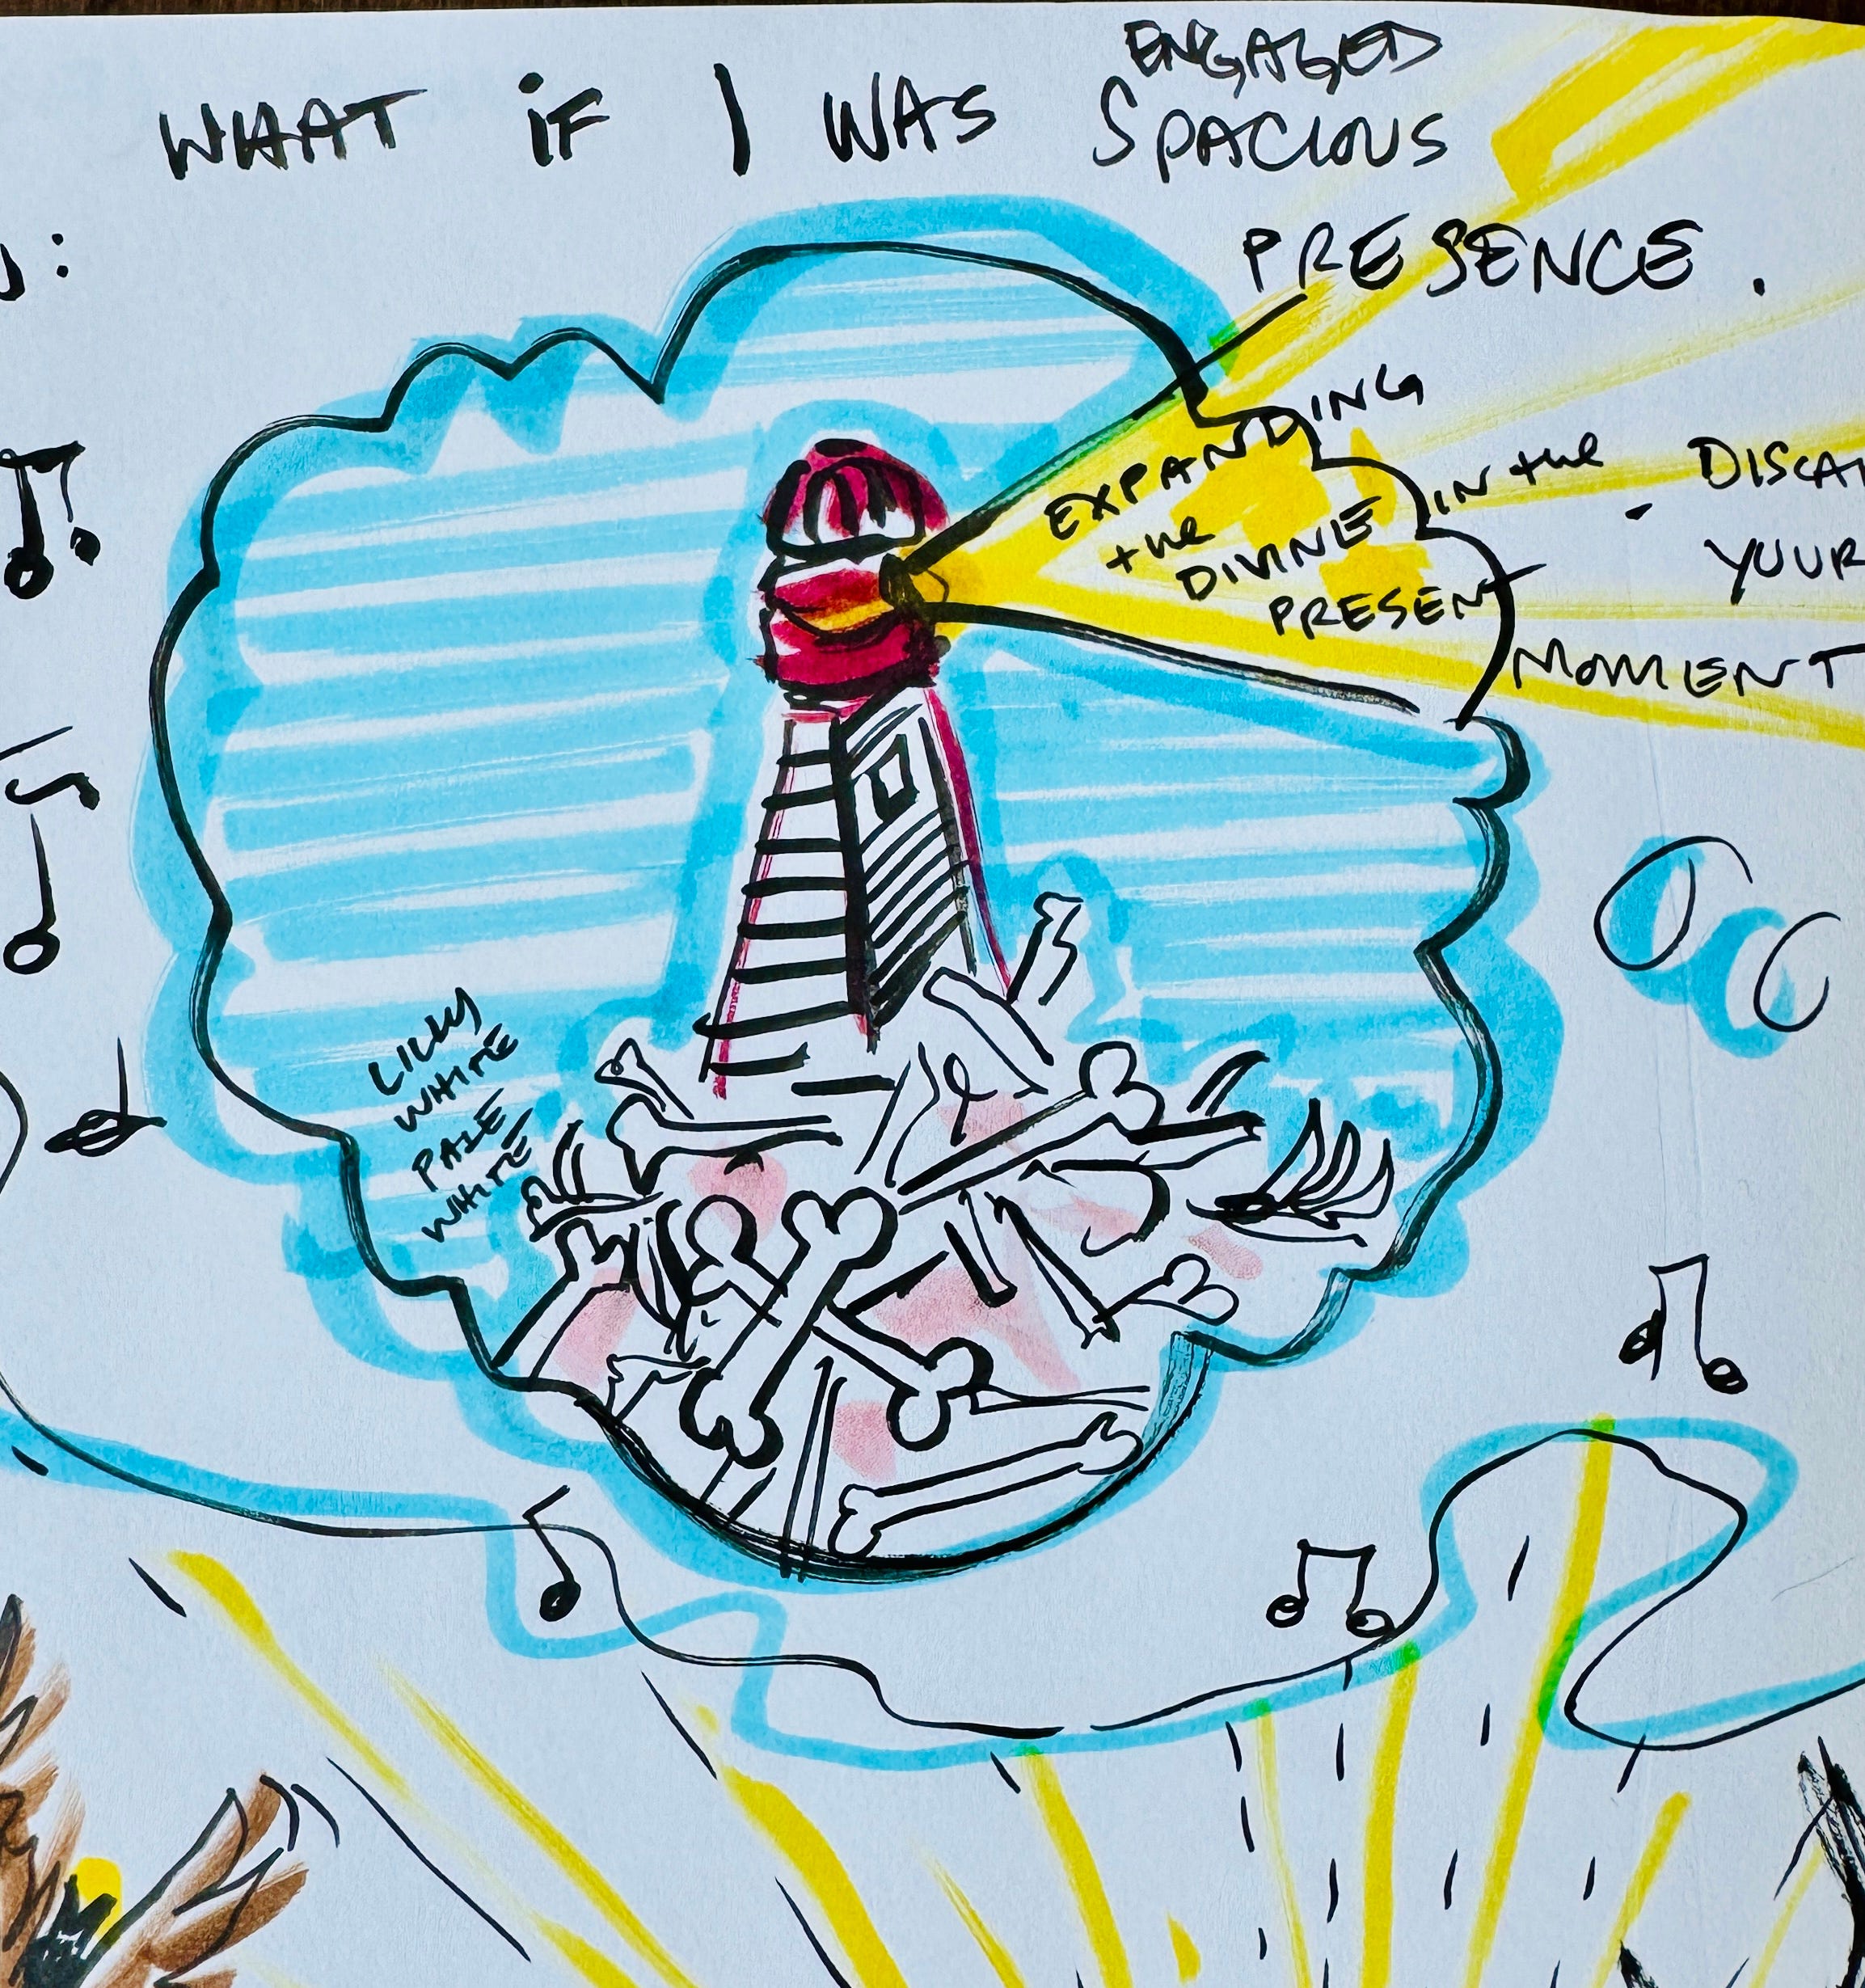 ENGAGED
WHAT iF I WAS SPACIOUS
PRESENCE.
EXPANDING
the DIVINE IN the
PRESENT MOMENT
YOUR
LILLY
WHITE
PALE
WHITE